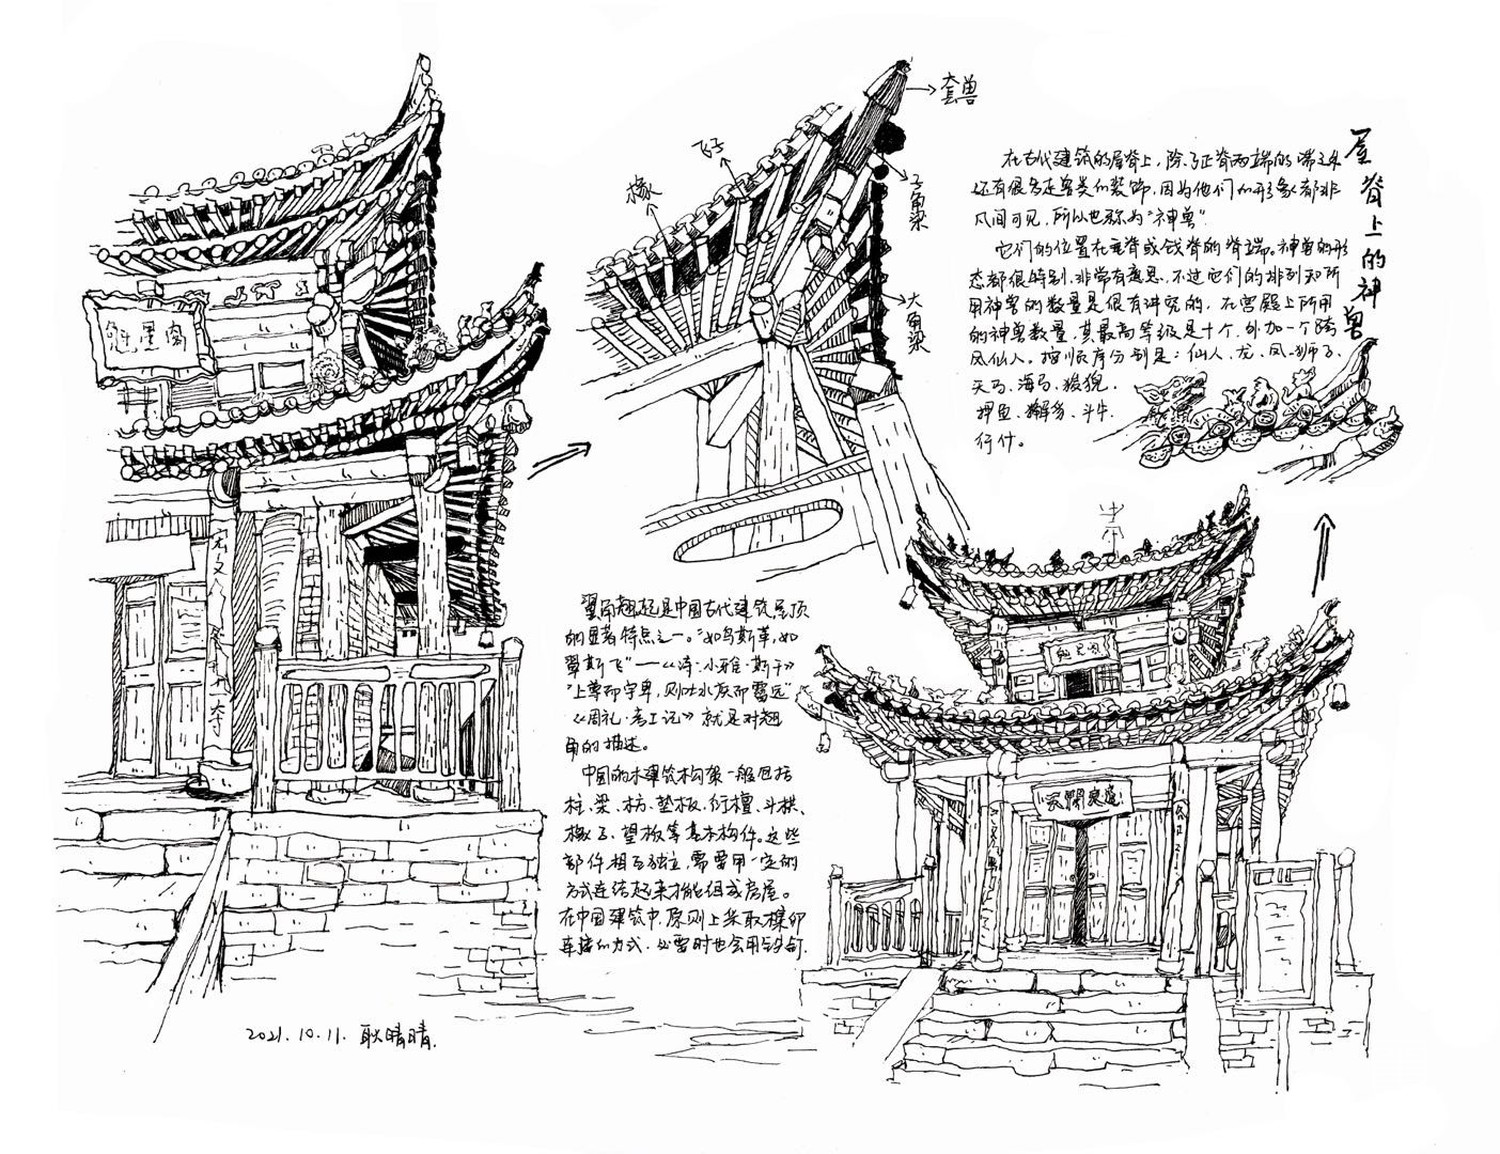 屋脊上的神兽
在古代建筑的屋脊上，除了正脊两端的
还有很多走兽类的装饰，因为他们的形象都非
凡间可见，所以也称为“神兽”
它们的位置在垂脊或戗脊的脊端。神兽的形
态都很特别，非常有意思，不过它们的排列和所
用神兽的数量是很有讲究的，在宫殿上所用
的神兽数量，其最高等级是十个，外加一个骑
凤仙人。按顺序分别是：仙人、龙、凤、狮子、
天马、海马、狻猊、
押鱼、獬豸、斗牛、
行什。
套兽
飞子
椽
子角梁
大角梁
魁星阁
翼角翘起是中国古代建筑屋顶
的显著特点之一。“如鸟斯革，如
翚斯飞”——《诗·小雅·斯干》
“上尊而宇卑，则吐水疾而霤远”
《周礼·考工记》就是对翘
角的描述。
中国的木建筑构架一般包括
柱、梁、枋、垫板、衍檀、斗栱、
椽子、望板等基本构件。这些
部件相互独立，需要用一定的
方式连结起来才能组成房屋。
在中国建筑中，原则上采取榫卯
连接的方式，必要时也会用
2021.10.11. 耿晴晴.